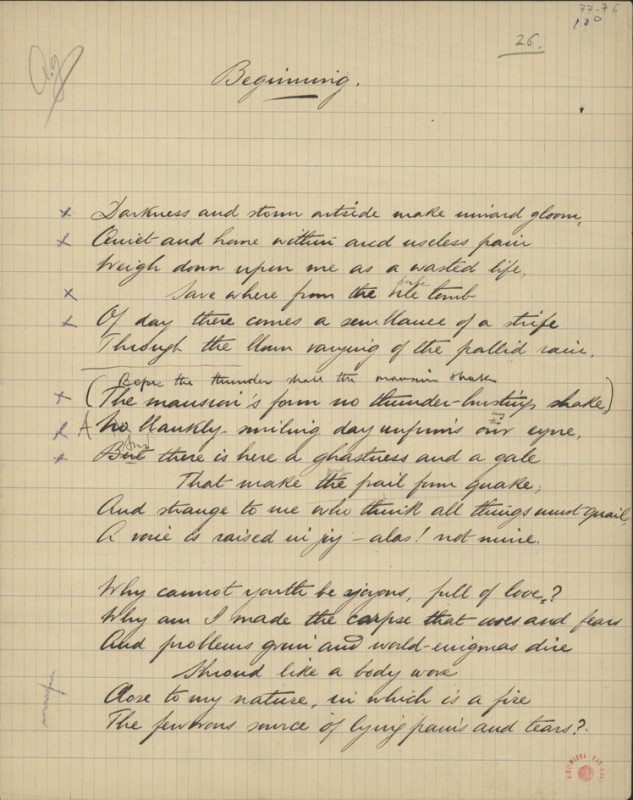 77-76
100
26.
Beginning.
Darkness and storm outside make inward gloom,
Quiet and home within and useless pain
Weigh down upon me as a wasted life,
Save where from the vile tomb
Of day there comes a semblance of a strife
Through the blam varying of the pallid rain.
Before the thunder shall the mansion shake
(The mansion's form no thunder-burstings shake)
A No blankly-smiling day unfirms our eyne,
But there is here a ghastness and a gale
That make the frail form quake;
And strange to me who think all things must quail,
A voice is raised in joy – alas! not mine.
Why cannot youth be joyous, full of love?
Why am I made the corpse that woes and fears
And problems grim and world-enigmas dire
Shroud like a body wove
Close to my nature, in which is a fire
The fevrous source of lying pains and tears?